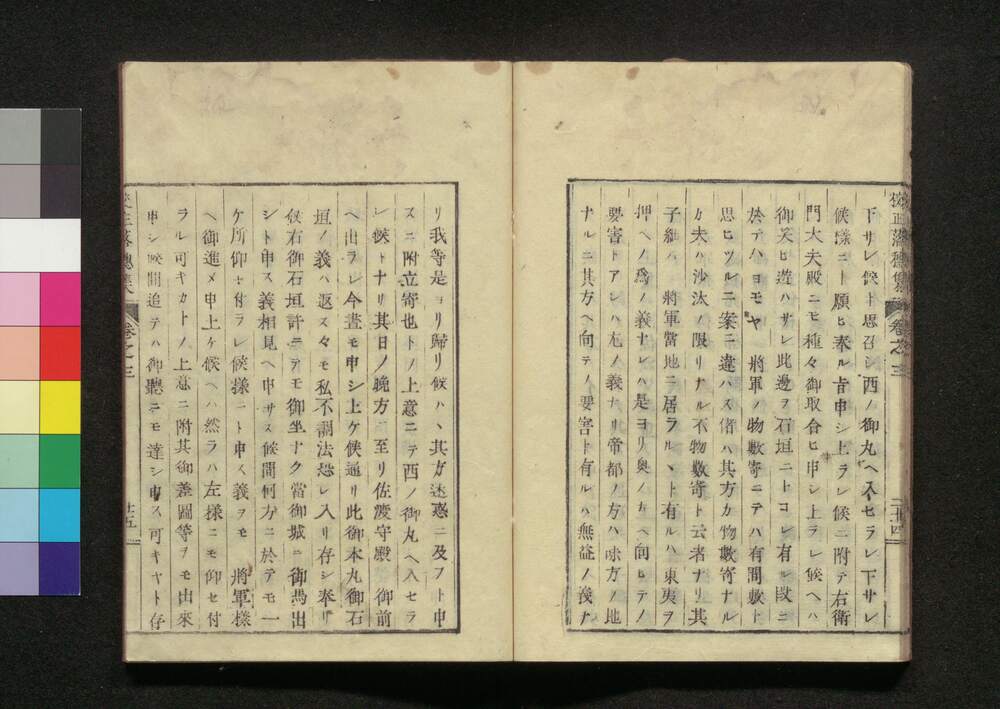 校正落穗集 卷之三 二十四
下サレ候ト思召シ西ノ御丸ヘ入セラレ下サレ
候樣ニト願ヒ奉ル旨申シ上ラレ候ニ附テ右衛
門大夫殿ニモ種々御取合ヒ申シ上ラレ候ヘハ
御笑ヒ遊ハサレ此邊ヲ石垣ニトコレ有ル段ニ
於テハヨモヤ 將軍ノ物數寄ニテハ有間敷ト
思ヒツルニ案ニ違ハス偖ハ其方カ物數寄ナル
カ夫ハ沙汰ノ限リナル不物數寄ト云者ナリ其
子細ハ 將軍當地ニ居ラルヽト有ルハ東夷ヲ
押ヘノ爲ノ義ナレハ是ヨリ奧ノ方ヘ向ヒテノ
要害トアレハ尤ノ義ナリ帝都ノ方ハ味方ノ地
ナルニ其方ヘ向テノ要害ト有ルハ無益ノ義ナ
リ我等是ヨリ歸リ候ハヽ其方迷惑ニ及フト申
スニ附立寄也トノ上意ニテ西ノ御丸ヘ入セラ
レ候トナリ其日ノ晩方ニ至リ佐渡守殿 御前
ヘ出ラレ今晝モ申シ上ケ候通リ此御本丸御石
垣ノ義ハ返ス々モ私不調法恐レ入リ存シ奉リ
候右御石垣許ニテモ御坐ナク當御城ニ御馬出
シト申ス義相見ヘ申サス候間何方ニ於テモ一
ケ所仰セ付ラレ候樣ニト申ス義ヲモ 將軍樣
ヘ御進メ申上ケ候ヘハ然ラハ左樣ニモ仰セ付
ラル可キカトノ上意ニ附其御差圖等ヲモ出來
申シ候間追テハ御聽ニモ達シ申ス可キヤト存
校正落穗集 卷之三 廿五